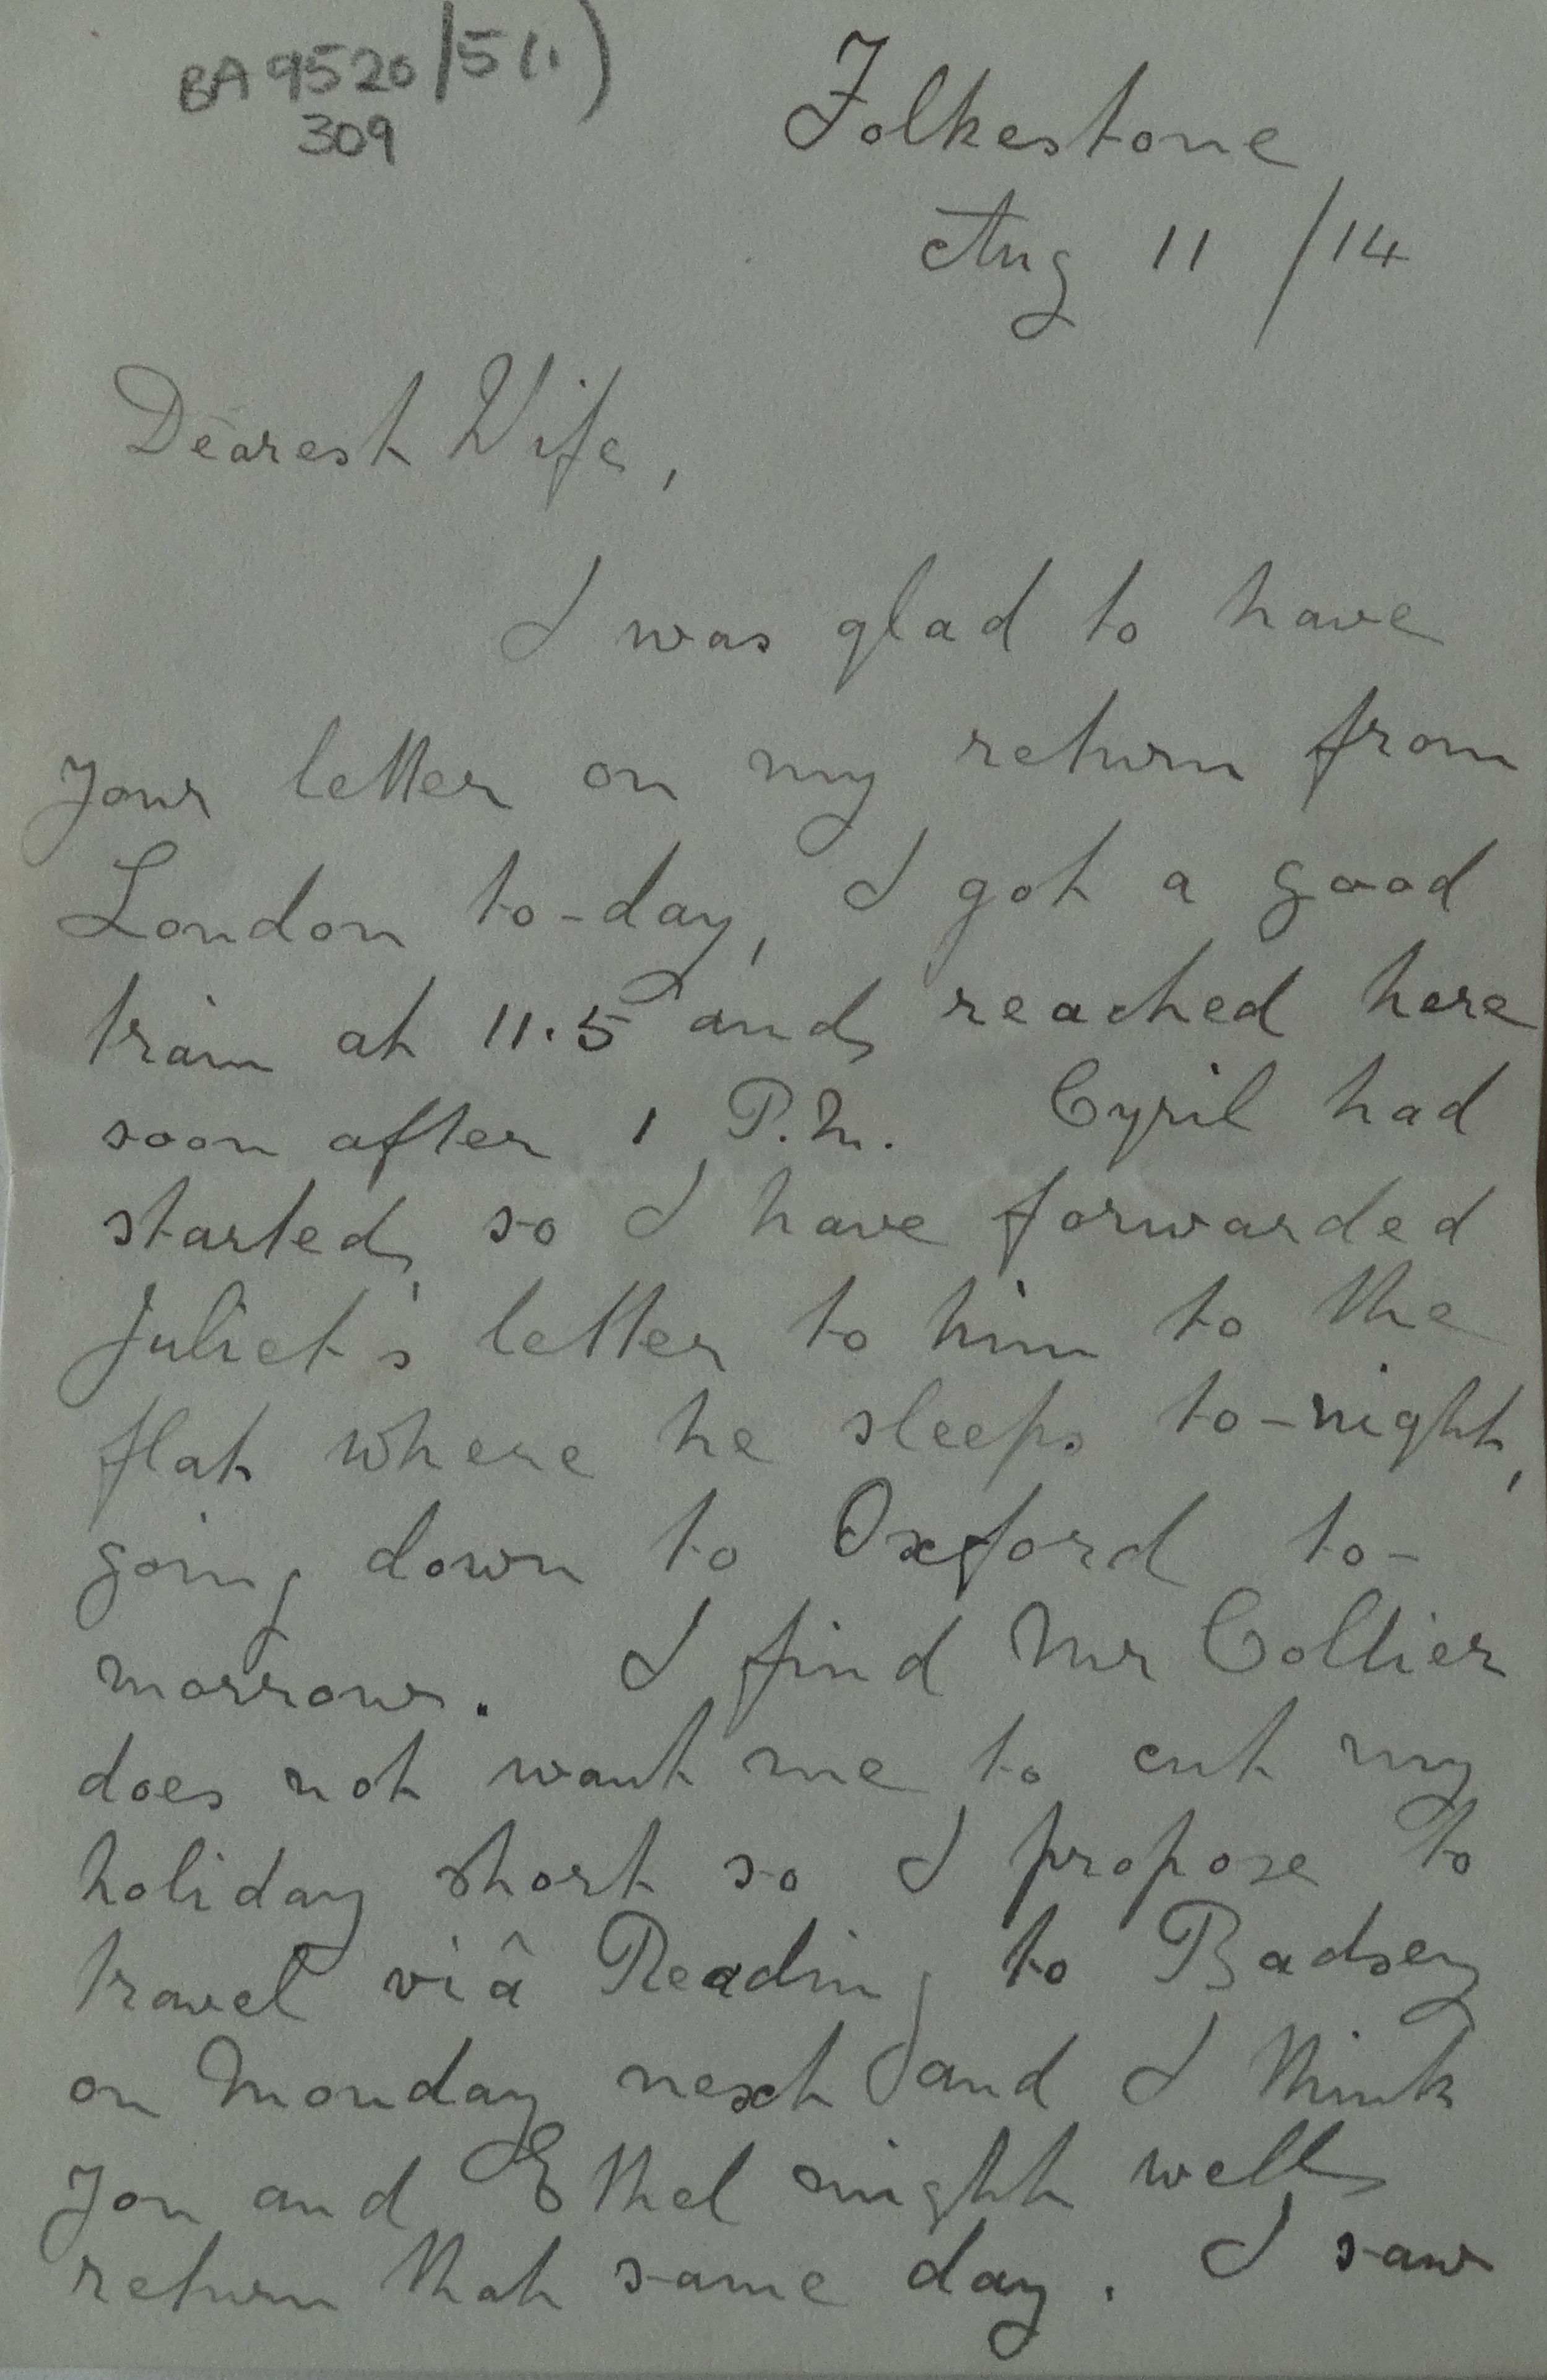 BA 9520/5(i)
309
Folkestone
Aug 11/14
Dearest Wife,
I was glad to have
your letter on my return from
London to-day, I got a good
train at 11.5 and reached here
soon after 1 P.M. Cyril had
started, so I have forwarded
Juliet's letter to him to the
flat where he sleeps to-night,
going down to Oxford to-
morrow. I find Mr Collier
does not want me to cut my
holiday short so I propose to
travel viâ Reading to Badsey
on Monday next and I think
you and Ethel might well
return that same day. I saw